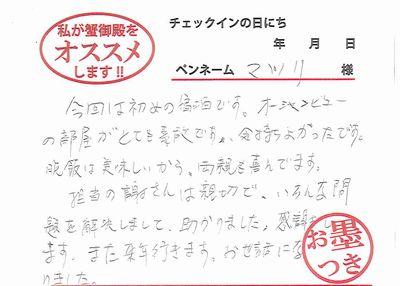 私が蟹御殿を
オススメ
します!!
チェックインの日にち
年 月 日
ペンネーム マツリ 様
今回は初めの宿泊です。オーシャンビュー
の部屋がとても素敵です。気持ちよかったです。
晩飯は美味しいから、両親も喜んでます。
担当の謝さんは親切で、いろんな問
題を解決しまして、助かりました。感謝
ます。また来年行きます。お世話にな
りました。
お墨
つき